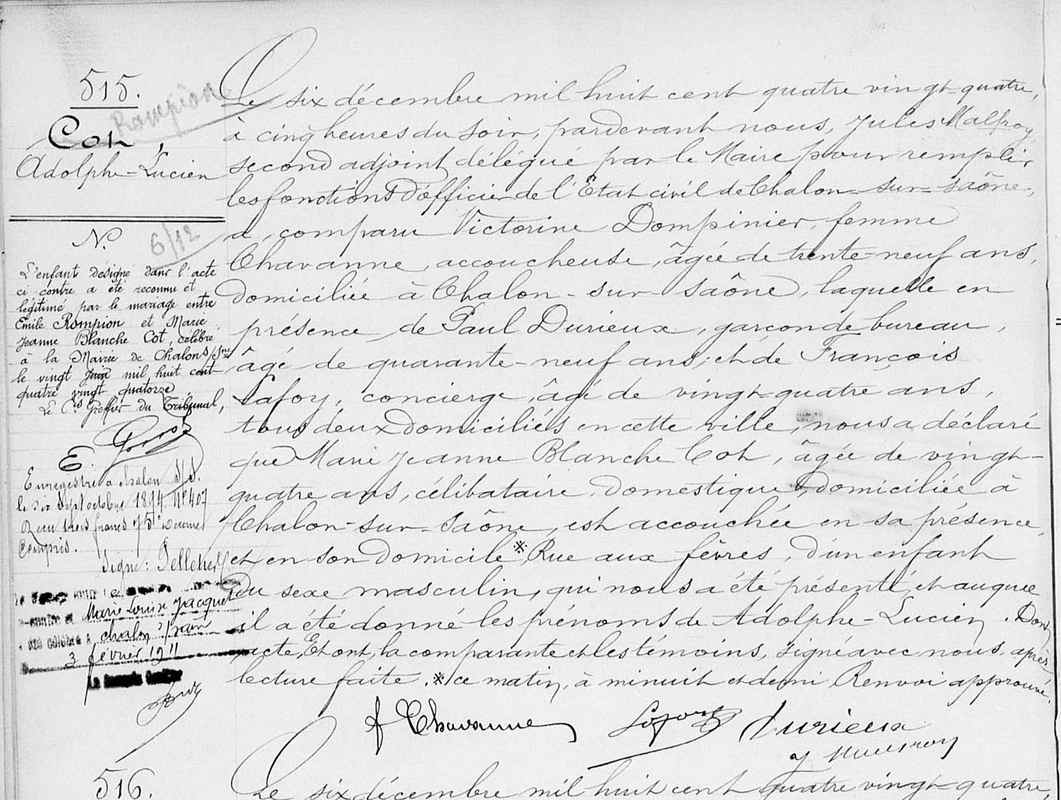 515.
Rompion
Cot,
Adolphe-Lucien
N.
6/12
L'enfant désigné dans l'acte
ci contre a été reconnu et
légitimé par le mariage entre
Emile Rompion et Marie
Jeanne Blanche Cot, célébré
à la Mairie de Chalon s/sne
le vingt juin mil huit cent
quatre vingt quatorze
Le Cis Greffier du Tribunal,
E.
Enregistré à Chalon s/s.
le dix sept octobre 1894 No 407
Reçu trois francs 75c Decimes
Compris.
Signé: Pelletier
Marie Louise Jacque
été célébré à Chalon s/Saône
3 février 1911
Le six décembre mil huit cent quatre vingt-quatre,
à cinq heures du soir, pardevant nous, Jules Malfroy,
second adjoint délégué par le Maire pour remplir
les fonctions d'officier de l'Etat civil de Chalon-sur-Saône,
a comparu Victorine Dompinier, femme
Chavanne, accoucheuse, âgée de trente-neuf ans,
domiciliée à Chalon-sur-Saône, laquelle en
présence de Paul Durieux, garçon de bureau,
âgé de quarante-neuf ans, et de François
Lafoy, concierge, âgé de vingt-quatre ans,
tous deux domiciliés en cette ville, nous a déclaré
que Marie Jeanne Blanche Cot, âgée de vingt-
quatre ans, célibataire, domestique, domiciliée à
Chalon-sur-Saône, est accouchée en sa présence,
et en son domicile * Rue aux fèvres, d'un enfant
du sexe masculin, qui nous a été présenté, et auquel
il a été donné les prénoms de Adolphe-Lucien. Dont
acte, Et ont, la comparante et les témoins, signé avec nous, après
lecture faite. * ce matin, à minuit et demi, Renvoi approuvé,
f Chavanne
Lafoy
Durieux
J Malfroy
516.
Le six décembre mil huit cent quatre vingt-quatre,